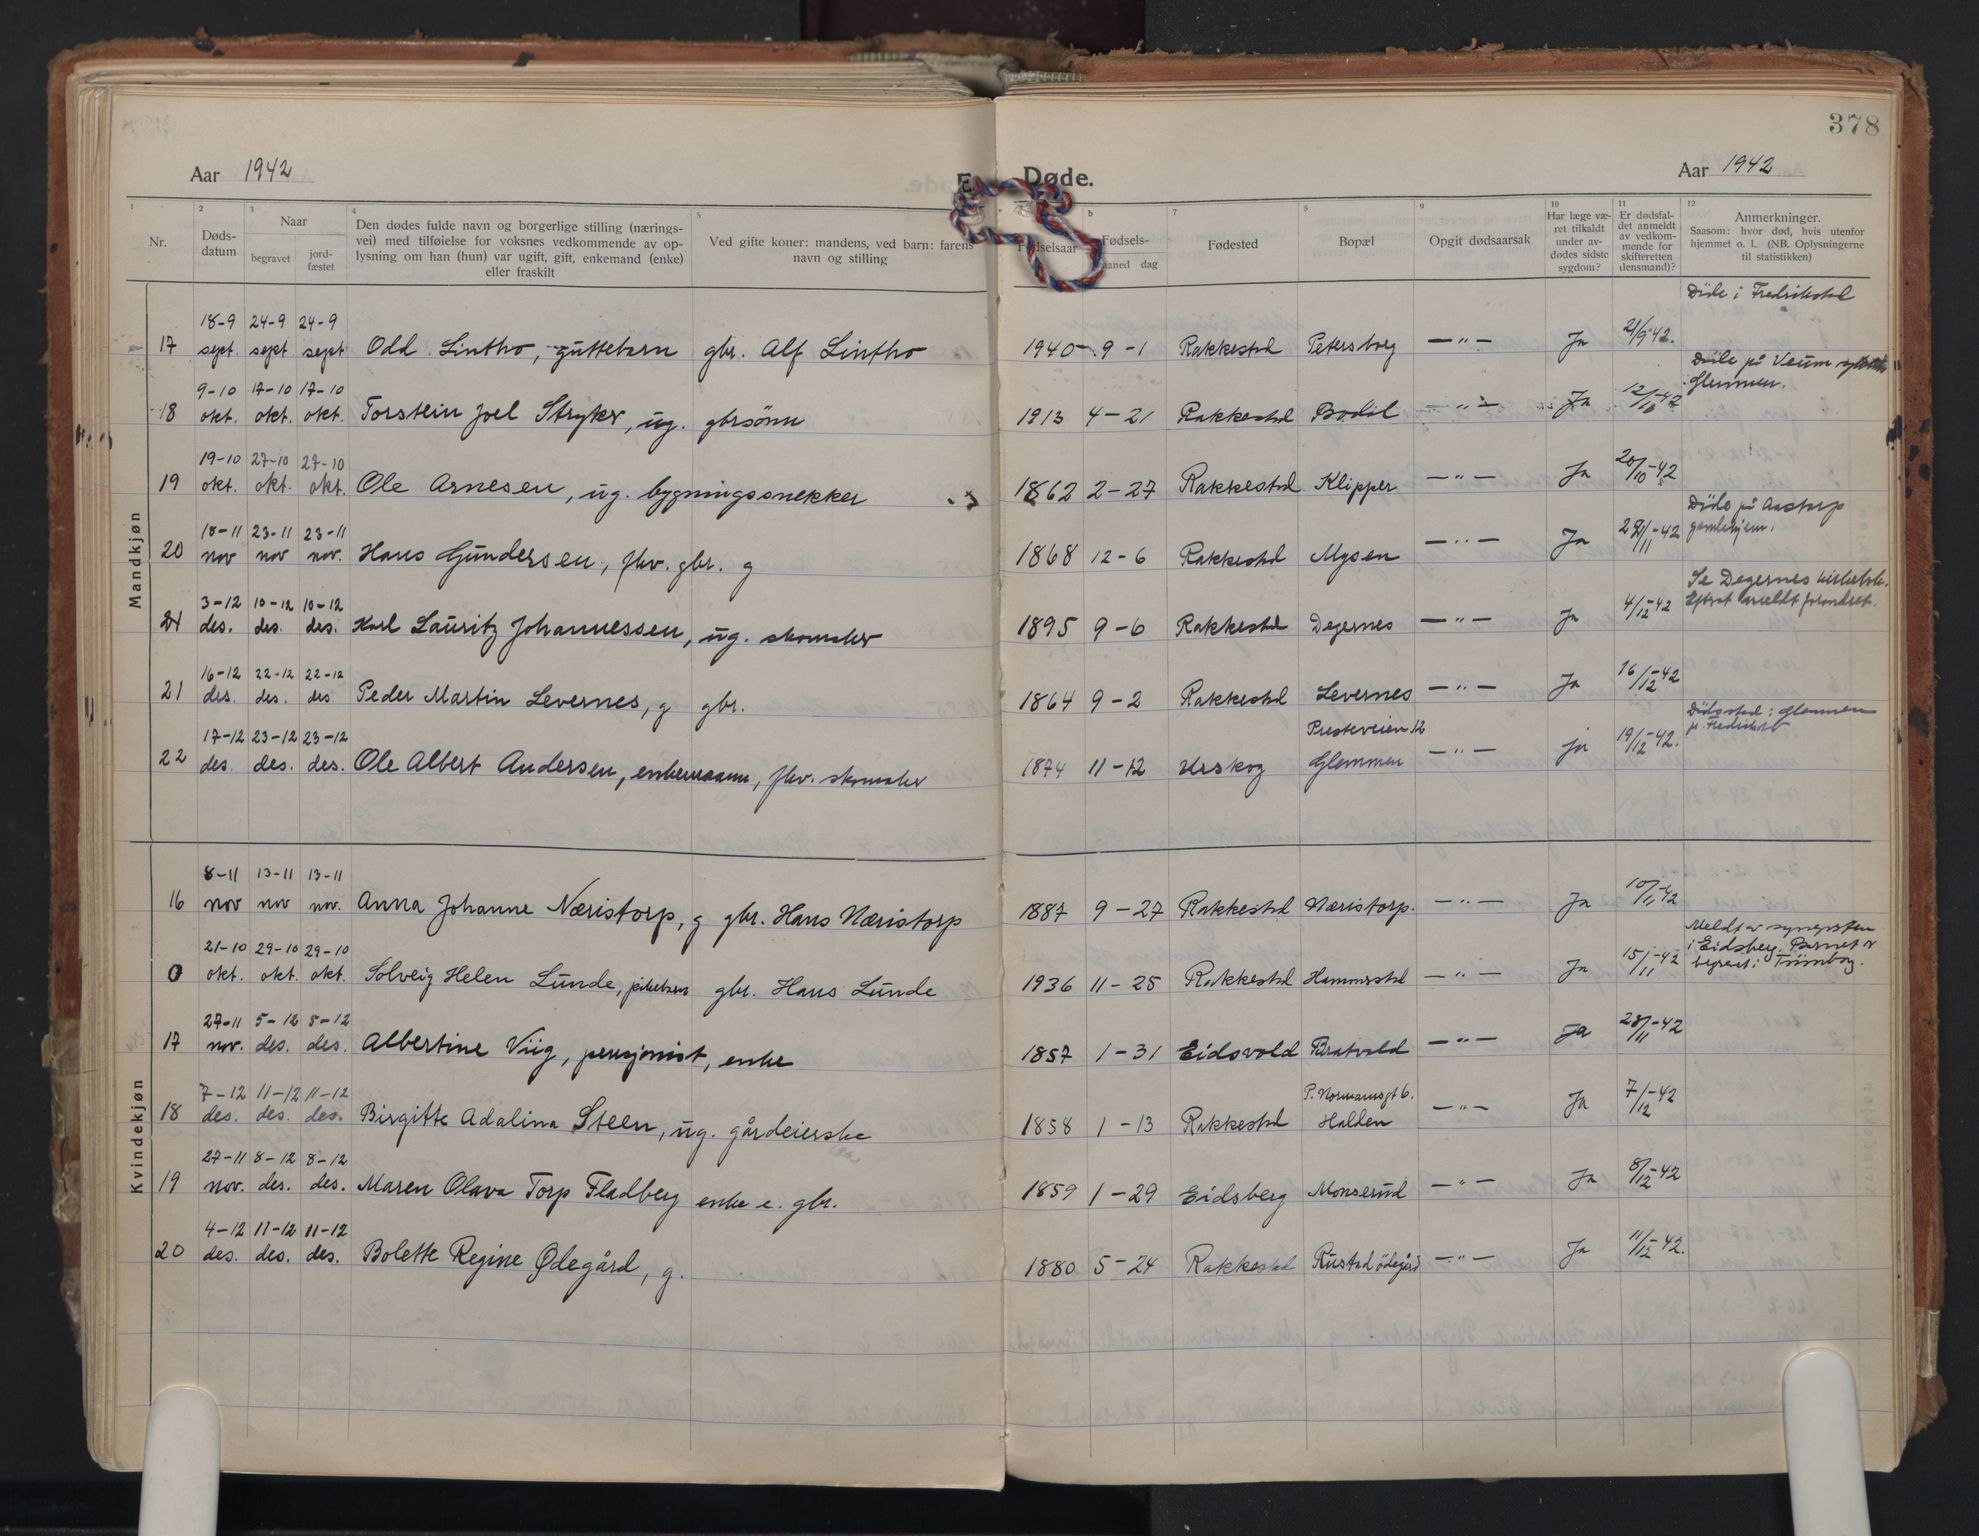 378
Aar 1942
E. Døde.
Aar 1942
1 2 3 4 5 6 7 8 9 10 11 12
Nr.
Døds-
datum
Naar
begravet
jord-
fæstet
Den dødes fulde navn og borgerlige stilling (nærings-
vei) med tilføielse for voksnes vedkommende av op-
lysning om han (hun) var ugift, gift, enkemand (enke)
eller fraskilt
Ved gifte koner: mandens, ved barn: farens
navn og stilling
Fødselsaar
Fødsels-
maaned dag
Fødested
Bopæl
Opgit dødsaarsak
Har læge væ-
ret tilkaldt
under av-
dødes sidste
sygdom?
Er dødsfal-
det anmeldt
av vedkom-
mende for
skifteretten
(lensmand)?
Anmerkninger.
Saasom: hvor død, hvis utenfor
hjemmet o. l. (NB. Oplysningerne
til statistikken)
Mandkjøn
18-9 24-9 24-9 Døde i Fredrikstad
17 sept. sept sept Odd Lintho, guttebarn gbr. Alf Lintho 1940 - 9 - 1 Rakkestad Petersborg — " — Ja 21/9-42.
9-10 17-10 17-10 Døde på Veum
Glemmen.
18 okt. okt. okt. Torstein Joel Stryker, ug. gbrsønn 1913 4 - 21 Rakkestad Bodal — " — Ja 12/10-42
19-10 27-10 27-10
19 okt. okt. okt. Ole Arnesen, ug. bygningssnekker 1862 2-27 Rakkestad Klipper — " — Ja 20/10-42
18-11 23-11 23-11 Døde på Aastorp
gamlehjem.
20 nov nov nov. Hans Gundersen, fhv. gbr. g 1868 12-6 Rakkestad Mysen — " — Ja /11-42
3-12 10-12 10-12 Se Degernes kirkebok.
Efterat anmeldt forandret.
21 des. des. des. Karl Lauritz Johannessen, ug. skomaker 1895 9-6 Rakkestad Degernes — " — Ja 4/12-42
16-12 22-12 22-12
21 des. des. des Peder Martin Levernes, g gbr. 1864 9-2 Rakkestad Levernes — " — Ja 16/12-42
17-12 23-12 23-12 Presteveien 12 Dødsstad: Glemmen
pr. Fredrikstad
22 des. des. des. Ole Albert Andersen, enkemann, fhv. skomaker 1874 11-12 Urskog Glemmen — " — ja 19/12-42.
Kvindekjøn
8-11 13-11 13-11
16 nov nov nov. Anna Johanne Næristorp, g gbr. Hans Næristorp 1887 9-27 Rakkestad Næristorp. — " — Ja 10/11-42
21-10 29-10 29-10 Meldt av sogneprsten
i Eidsberg. Barnet er
begravet i Trømborg.
0 okt. okt. okt. Solveig Helen Lunde, pikebarn gbr. Hans Lunde 1936 11-25 Rakkestad Hammerstad — " — Ja 15/11-42
27-11 5-12 5-12
17 nov. des. des. Albertine Viig, pensjonist, enke 1857 1-31 Eidsvold Bratvold — " — Ja 28/11-42
7-12 11-12 11-12 P. Normannsgt 6.
18 des. des. des. Birgitte Adalina Steen, ug. gårdeierske 1858 1-13 Rakkestad Halden — " — Ja 7/12-42
27-11 8-12 8-12
19 nov. des. des. Maren Olava Torp Fladberg enke e. gbr. 1859 1-29 Eidsberg Monserud — " — Ja 8/12-42
4-12 11-12 11-12
20 des. des. des. Bolette Regine Ødegård, g. 1880 5-24 Rakkestad Rustad ødegård — " — Ja 11/12-42.